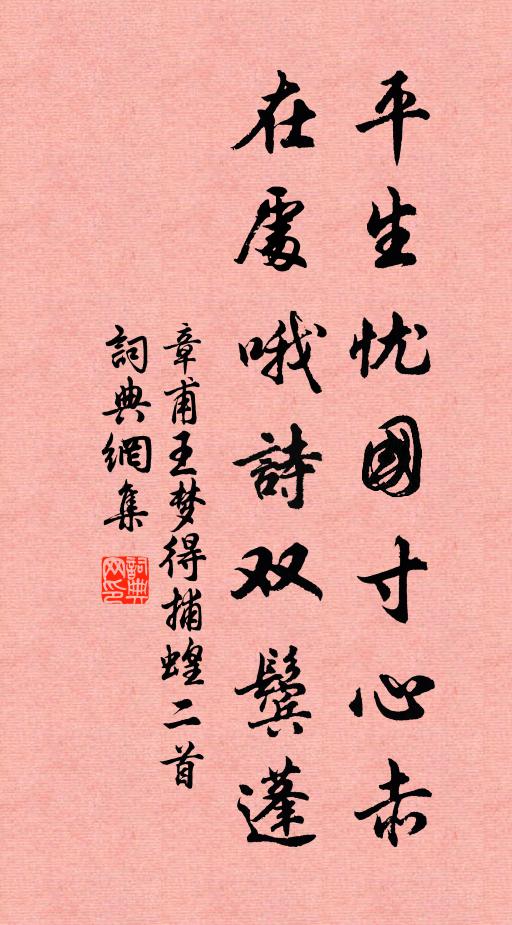 平生忧國寸心赤
在處哦詩双鬓蓬
章甫王梦得捕蝗二首
詞典網集
詞典網印